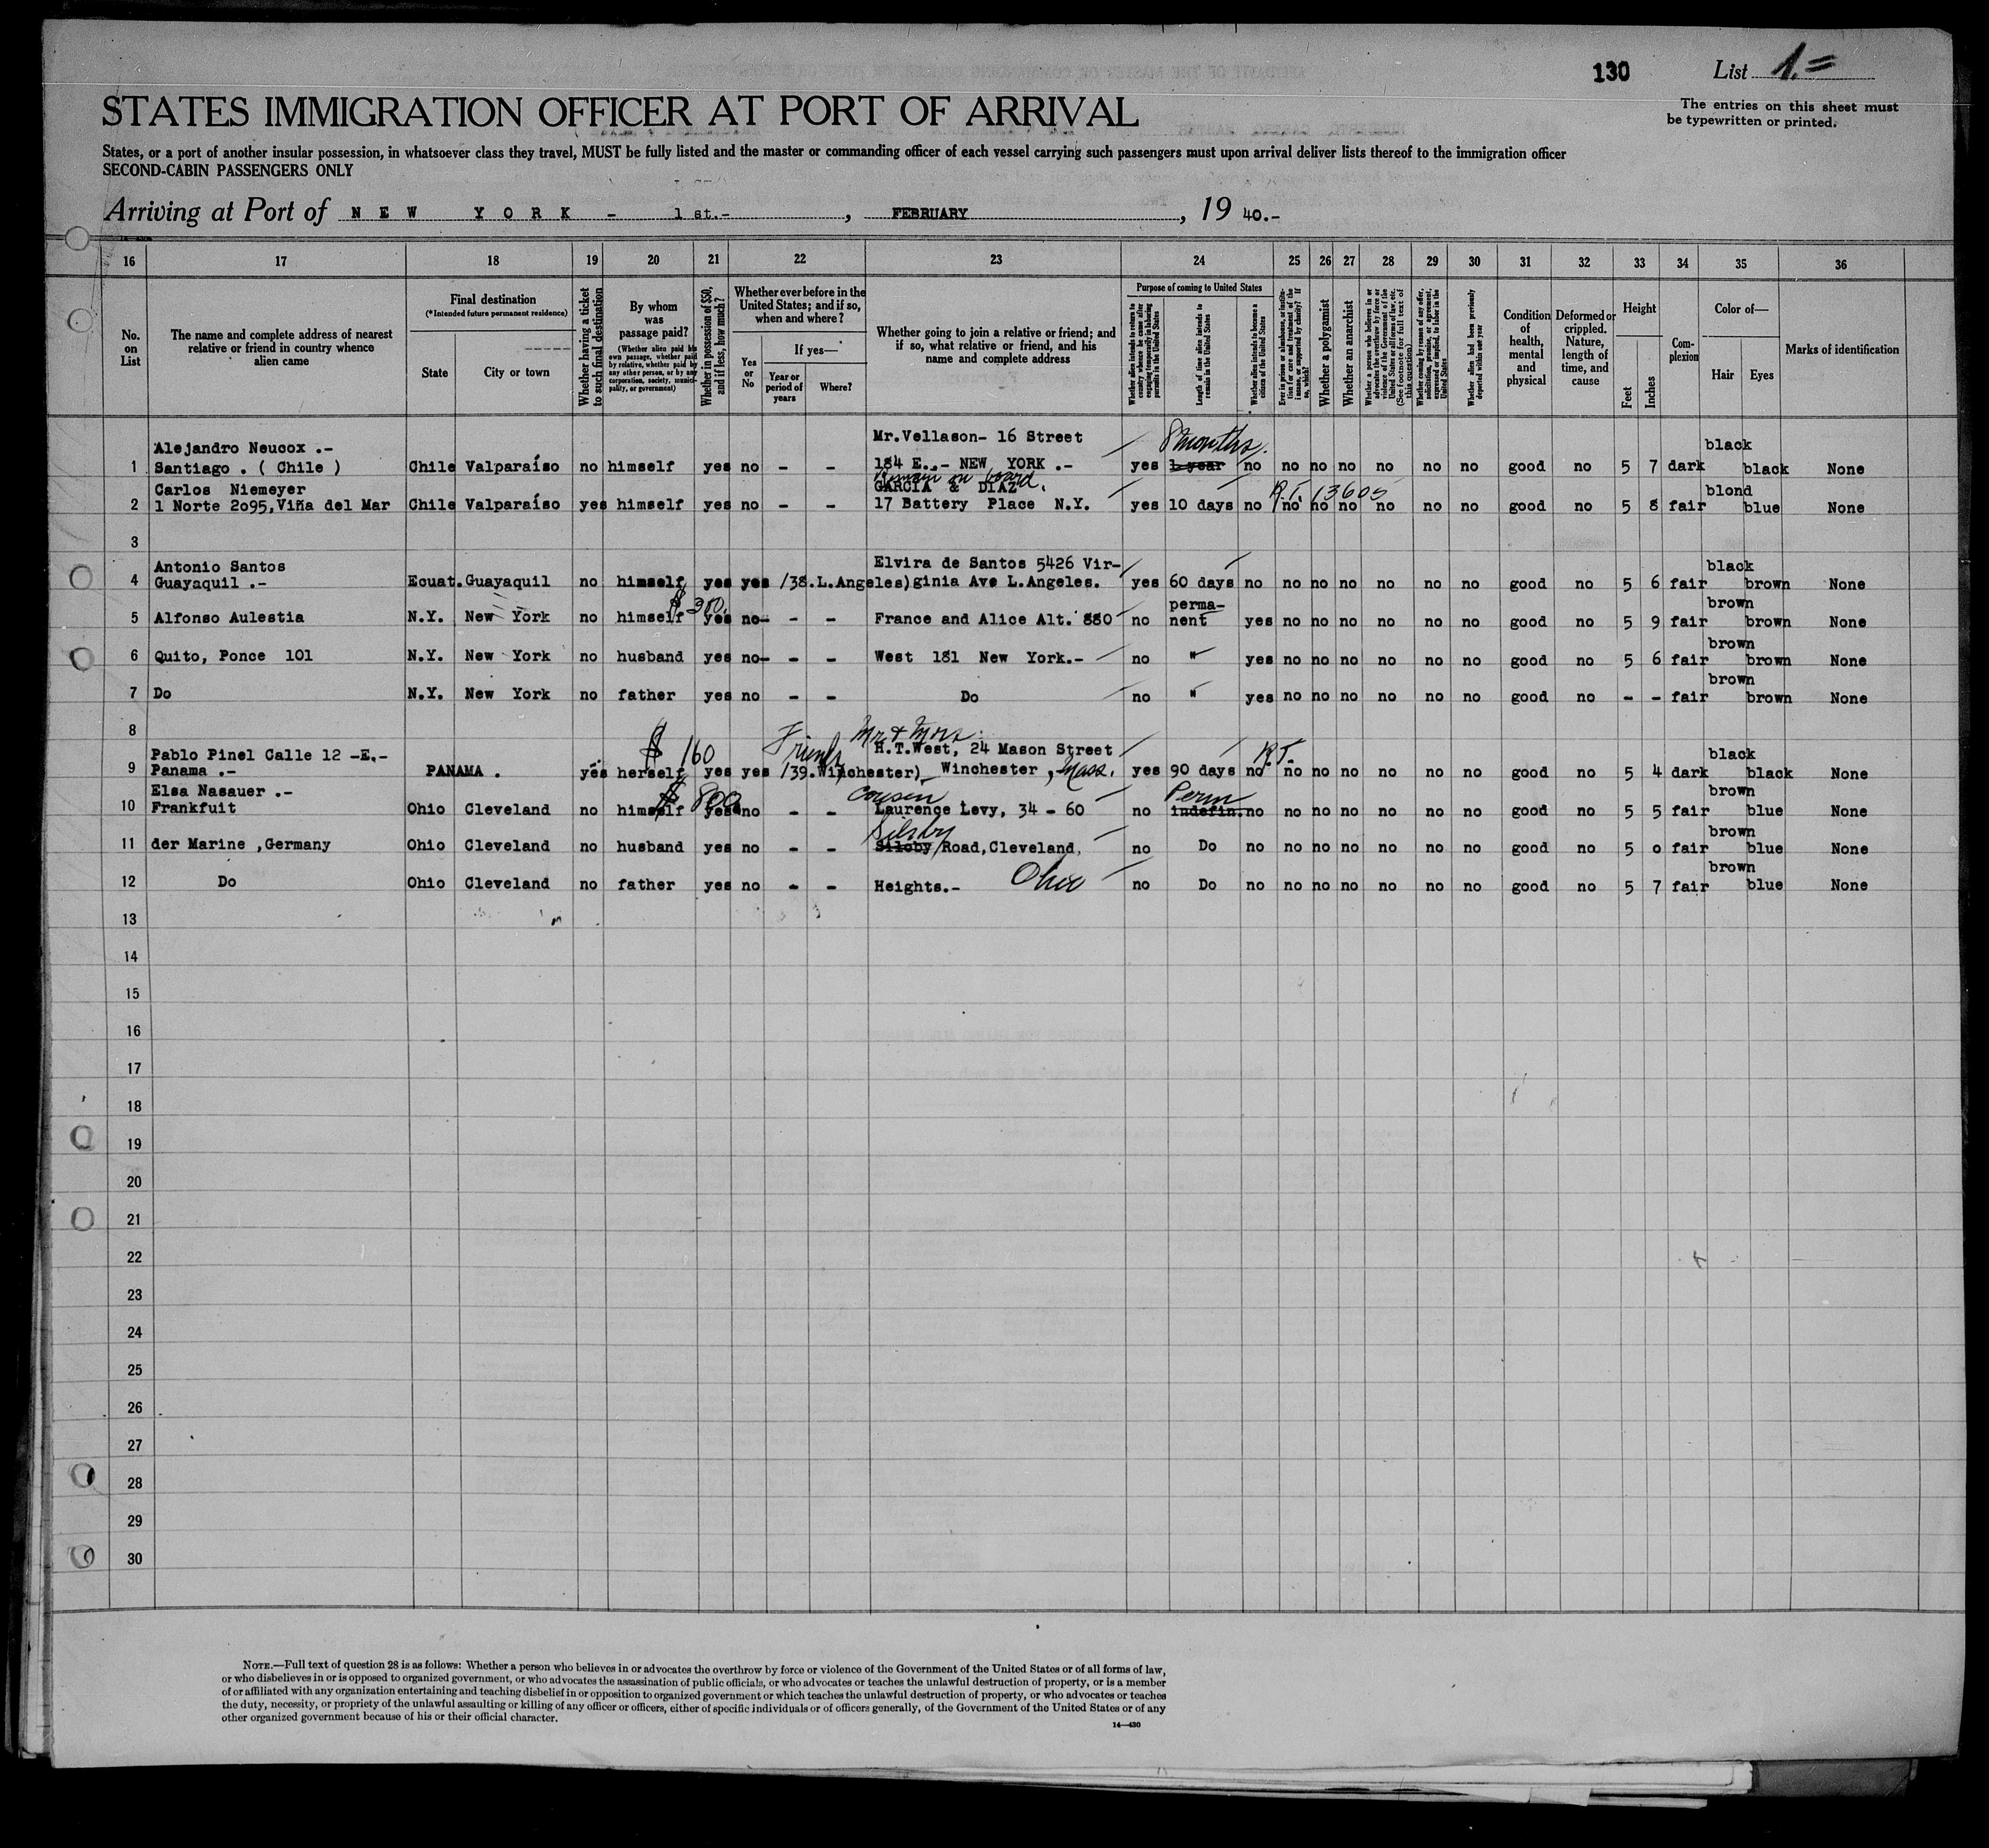 130
List 1.=
The entries on this sheet must
be typewritten or printed.
STATES IMMIGRATION OFFICER AT PORT OF ARRIVAL
States, or a port of another insular possession, in whatsoever class they travel, MUST be fully listed and the master or commanding officer of each vessel carrying such passengers must upon arrival deliver lists thereof to the immigration officer
SECOND-CABIN PASSENGERS ONLY
Arriving at Port of N E W Y O R K - 1 st.- , FEBRUARY , 19 40.-
16 17 18 19 20 21 22 23 24 25 26 27 28 29 30 31 32 33 34 35 36
No.
on
List
The name and complete address of nearest
relative or friend in country whence
alien came
Final destination
(*Intended future permanent residence)
State
City or town
Whether having a ticket
to such final destination
By whom
was
passage paid?
(Whether alien paid his
own passage, whether paid
by relative, whether paid by
any other person, or by any
corporation, society, munici-
pality, or government)
Whether in possession of $50,
and if less, how much?
Whether ever before in the
United States; and if so,
when and where?
Yes
or
No
If yes—
Year or
period of
years
Where?
Whether going to join a relative or friend; and
if so, what relative or friend, and his
name and complete address
Purpose of coming to United States
Whether alien intends to return to
country whence he came after
engaging temporarily in laboring
pursuits in the United States
Length of time alien intends to
remain in the United States
Whether alien intends to become a
citizen of the United States
Ever in prison or almshouse, or institu-
tion for care and treatment of the
insane, or supported by charity? If
so, which?
Whether a polygamist
Whether an anarchist
Whether a person who believes in or
advocates the overthrow by force or
violence of the Government of the
United States or all forms of law, etc.
(See footnote for full text of
this question)
Whether coming by reason of any offer,
solicitation, promise, or agreement,
expressed or implied, to labor in the
United States
Whether alien had been previously
deported within one year
Condition
of
health,
mental
and
physical
Deformed or
crippled.
Nature,
length of
time, and
cause
Height
Feet
Inches
Com-
plexion
Color of—
Hair
Eyes
Marks of identification
Alejandro Neucox .- Mr.Vellason- 16 Street 8 months. black
1 Santiago . ( Chile ) Chile Valparaíso no himself yes no - - 184 E..- NEW YORK .- yes 1 year no no no no no no no good no 5 7 dark black None
Remain on board.
Carlos Niemeyer GARCIA & DIAZ R.T. 13605 blond
2 1 Norte 2095,Viña del Mar Chile Valparaíso yes himself yes no - - 17 Battery Place N.Y. yes 10 days no no no no no no no good no 5 8 fair blue None
3
Antonio Santos Elvira de Santos 5426 Vir- black
4 Guayaquil .- Ecuat. Guayaquil no himself yes yes /38.L.Angeles) ginia Ave L.Angeles. yes 60 days no no no no no no no good no 5 6 fair brown None
$ 380. perma- brown
5 Alfonso Aulestia N.Y. New York no himself yes no - - France and Alice Alt. 880 no nent yes no no no no no no good no 5 9 fair brown None
brown
6 Quito, Ponce 101 N.Y. New York no husband yes no - - West 181 New York.- no " yes no no no no no no good no 5 6 fair brown None
brown
7 Do N.Y. New York no father yes no - - Do no " yes no no no no no no good no - - fair brown None
8
Mr. & Mrs.
Pablo Pinel Calle 12 -E.- $ 160 Friends H.T.West, 24 Mason Street R.T. black
9 Panama .- PANAMA . yes herself yes yes /39.Winchester) Winchester , Mass. yes 90 days no no no no no no no good no 5 4 dark black None
Elsa Nasauer .- $ 800 Cousin Perm brown
10 Frankfuit Ohio Cleveland no himself yes no - - Laurence Levy, 34 - 60 no indefin. no no no no no no no good no 5 5 fair blue None
Silsby brown
11 der Marine ,Germany Ohio Cleveland no husband yes no - - Siloby Road,Cleveland, no Do no no no no no no no good no 5 0 fair blue None
brown
12 Do Ohio Cleveland no father yes no - - Heights.- Ohio no Do no no no no no no no good no 5 7 fair blue None
13
14
15
16
17
18
19
20
21
22
23
24
25
26
27
28
29
30
NOTE.—Full text of question 28 is as follows: Whether a person who believes in or advocates the overthrow by force or violence of the Government of the United States or of all forms of law,
or who disbelieves in or is opposed to organized government, or who advocates the assassination of public officials, or who advocates or teaches the unlawful destruction of property, or is a member
of or affiliated with any organization entertaining and teaching disbelief in or opposition to organized government or which teaches the unlawful destruction of property, or who advocates or teaches
the duty, necessity, or propriety of the unlawful assaulting or killing of any officer or officers, either of specific individuals or of officers generally, of the Government of the United States or of any
other organized government because of his or their official character.
14—430